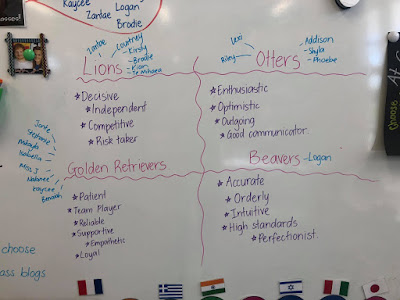 Kaycee Logan
Zartae
Brodie
Zartae
Courtney
- Kirdy
- Brodie
- Kian
- Tr. Mihaera
Lions
* Decisive
* Independent
* Competitive
* Risk taker
Lexi
Riley
- Addison
- Shyla
- Phoebe
Otters
* Enthusiastic
* Optimistic
* Outgoing
* Good communicator.
Jorja
Stephanie
Makayla
Isabella
Miss J
Natanee
Kaycee
Golden Retrievers
* Patient
* Team Player
* Reliable
* Supportive
* Empathetic
* Loyal
Beavers - Logan
* Accurate
* Orderly
* Intuitive
* High standards
* Perfectionist.
choose
ass blogs
Choose